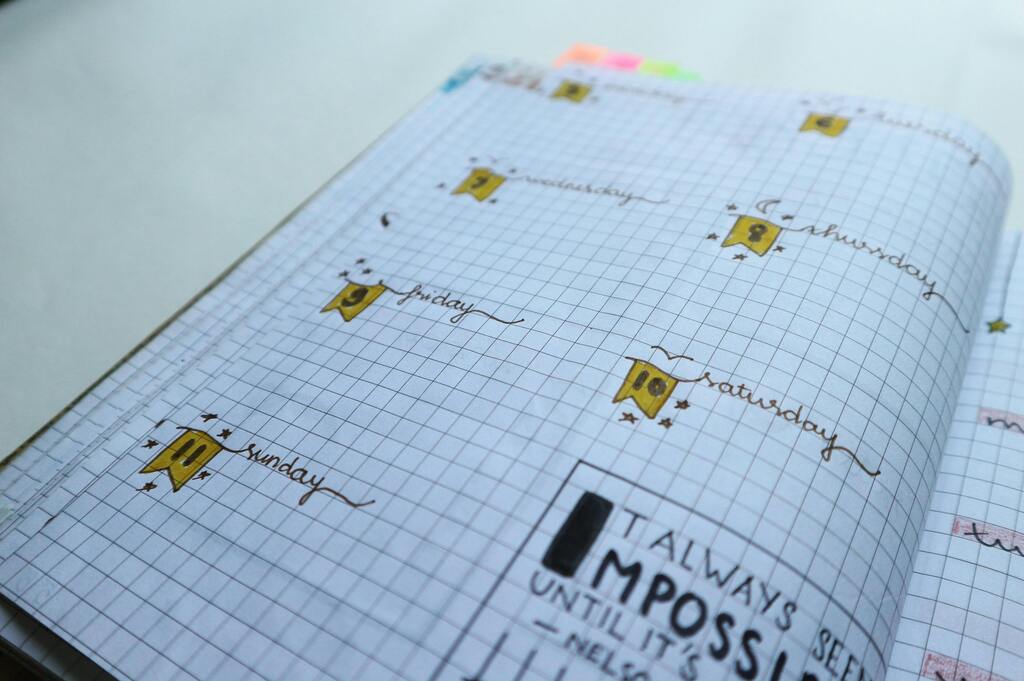 5
6 tuesday
7 wednesday
8 thursday
9 friday
10 saturday
11 sunday
IT ALWAYS SEEM
IMPOSSI
UNTIL IT'S
– NELSO